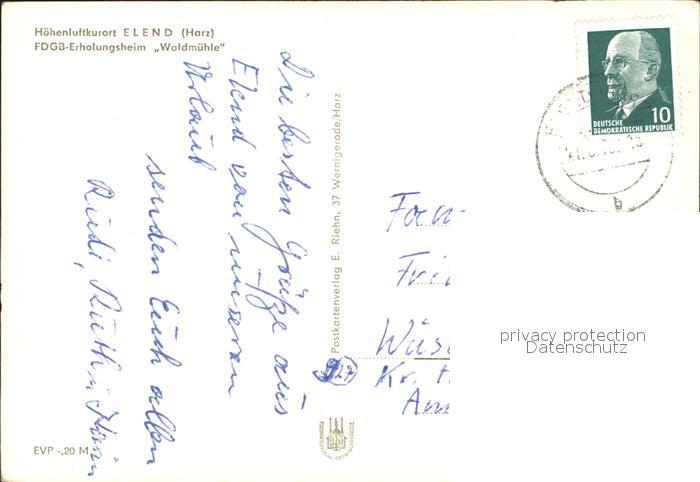 Höhenluftkurort ELEND (Harz)
FDGB-Erholungsheim „Waldmühle"
Die besten Grüße aus
Elend von unseren
Urlaub
senden Euch allen
Rudi, Ruth u.
Postkartenverlag E. Riehn, 37 Wernigerode/Harz
EVP -,20 M
10
DEUTSCHE
DEMOKRATISCHE REPUBLIK
b
Fam
Kr.
privacy protection
Datenschutz